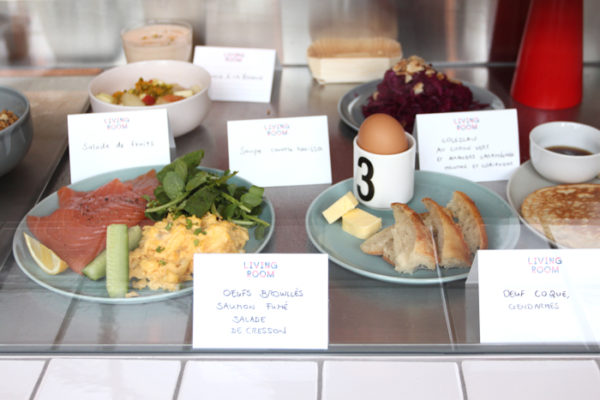 LIVING
ROOM
LIVING
ROOM
Salade de fruits
LIVING
ROOM
Soupe carotte
LIVING
ROOM
COLESLAW
AU CITRON VERT
ET
MENTHE ET CORIANDRE
3
LIVING
ROOM
OEUFS BROUILLÉS
SAUMON FUMÉ
SALADE
DE CRESSON
LIVING
ROOM
OEUF COQUE,